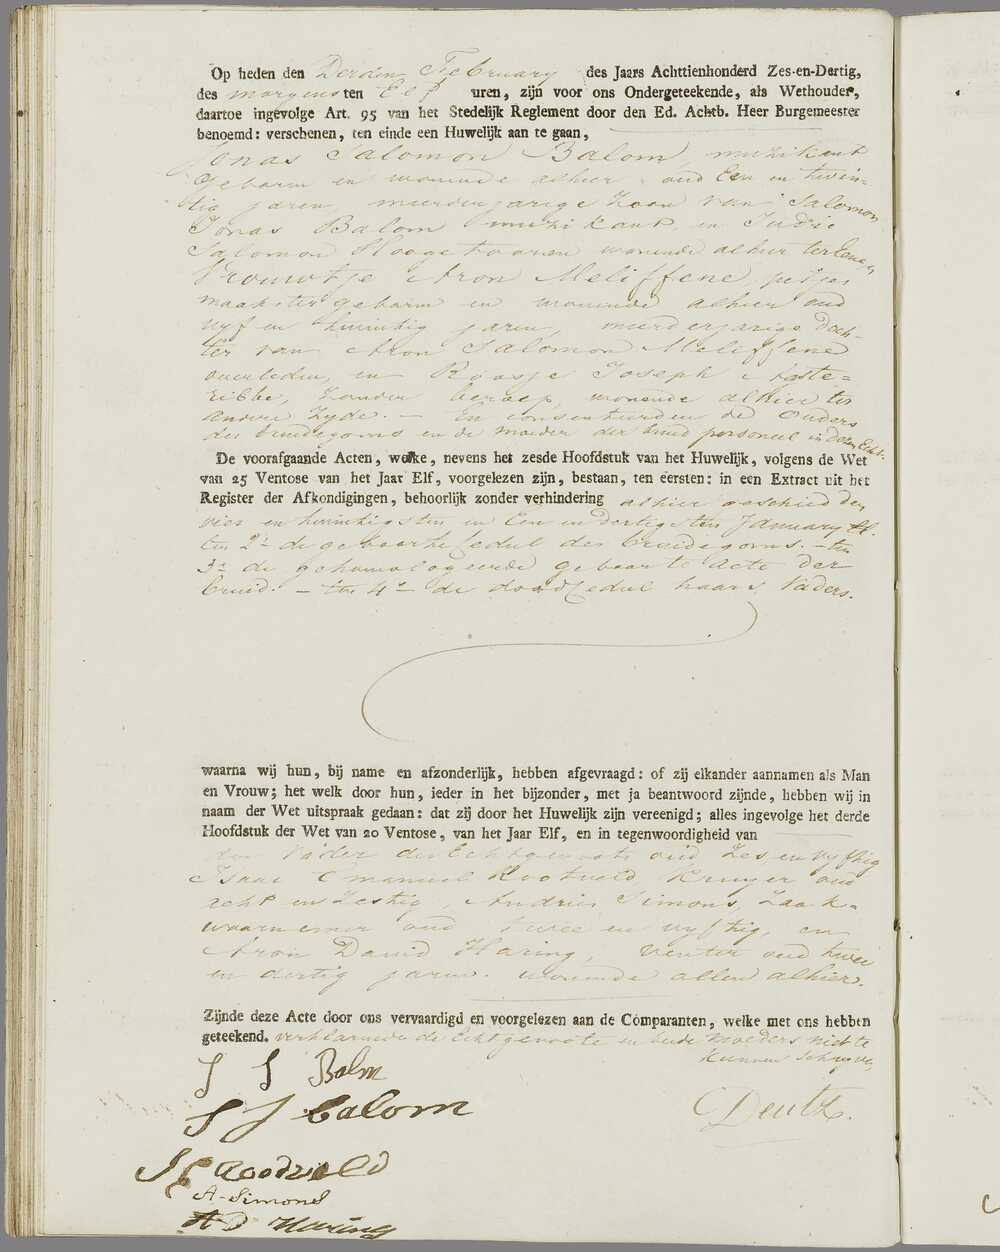 Op heden den Derden February des Jaars Achttienhonderd Zes-en-Dertig,
des morgens ten Elf uren, zijn voor ons Ondergeteekende, als Wethouder,
daartoe ingevolge Art. 95 van het Stedelijk Reglement door den Ed. Achtb. Heer Burgemeester
benoemd: verschenen, ten einde een Huwelijk aan te gaan,
Jonas Salomon Balom, muzikant
geboren en wonende alhier oud Een en twin-
tig jaren, meerderjarige Zoon van Salomon
Jonas Balom muzikant, en Judic
Salomon Hoogetooren wonende alhier ter Eenre,
Vrouwtje Aron Meliffene, petjes
maakster geboren en wonende alhier oud
vyf en twintig jaren, meerderjarige Doch-
ter van Aron Salomon Meliffene
overleden, en Roosje Joseph
zonder beroep, wonende alhier ter
andere Zyde. — En consenteerden de Ouders
des bruidegoms en de moeder der bruid personeel in dezen Echt.
De voorafgaande Acten, welke, nevens het zesde Hoofdstuk van het Huwelijk, volgens de Wet
van 25 Ventose van het Jaar Elf, voorgelezen zijn, bestaan, ten eersten: in een Extract uit het
Register der Afkondigingen, behoorlijk zonder verhindering alhier geschied den
vier en twintigsten en Een en dertigsten January ll.
ten 2e de geboorte Cedul des bruidegoms. — ten
3e de gehomologeerde geboorte acte der
bruid. — ten 4e de dood Cedul haars Vaders.
waarna wij hun, bij name en afzonderlijk, hebben afgevraagd: of zij elkander aannamen als Man
en Vrouw; het welk door hun, ieder in het bijzonder, met ja beantwoord zijnde, hebben wij in
naam der Wet uitspraak gedaan: dat zij door het Huwelijk zijn vereenigd; alles ingevolge het derde
Hoofdstuk der Wet van 20 Ventose, van het Jaar Elf, en in tegenwoordigheid van
den Vader des Echtgenoots oud Zes en vyftig
Isaac Emanuel Rootveld, Kruyer oud
acht en Zestig, Andries Simons, Zaak-
waarnemer oud twee en vyftig, en
Aron David Haring, venter oud twee
en dertig jaren. wonende allen alhier.
Zijnde deze Acte door ons vervaardigd en voorgelezen aan de Comparanten, welke met ons hebben
geteekend. verklarende de Echtgenoote en beide moeders niet te
kunnen schryven
J S Balm
S J Balom
Deutz.
I E Roodveld
A. Simons
A D Haring